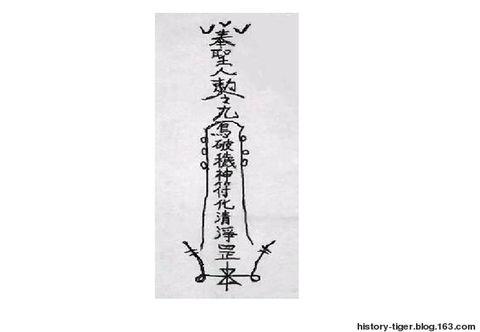 奉聖人勅令九鳳破穢神符化清淨罡
history-tiger.blog.163.com